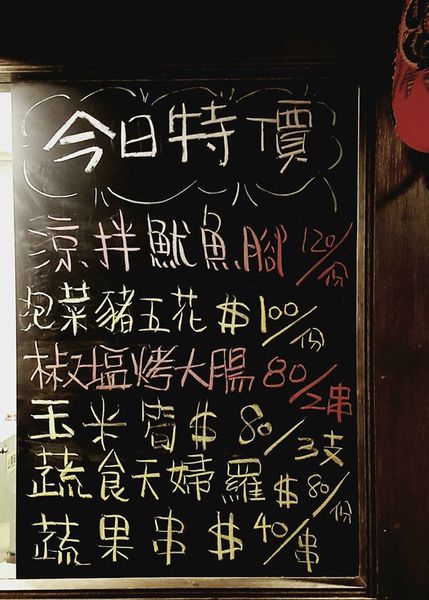 今日特價
涼拌魷魚腳 120/份
泡菜豬五花 $100/份
椒塩烤大腸 80/2串
玉米筍 $80/3支
蔬食天婦羅 $80/份
蔬果串 $40/串